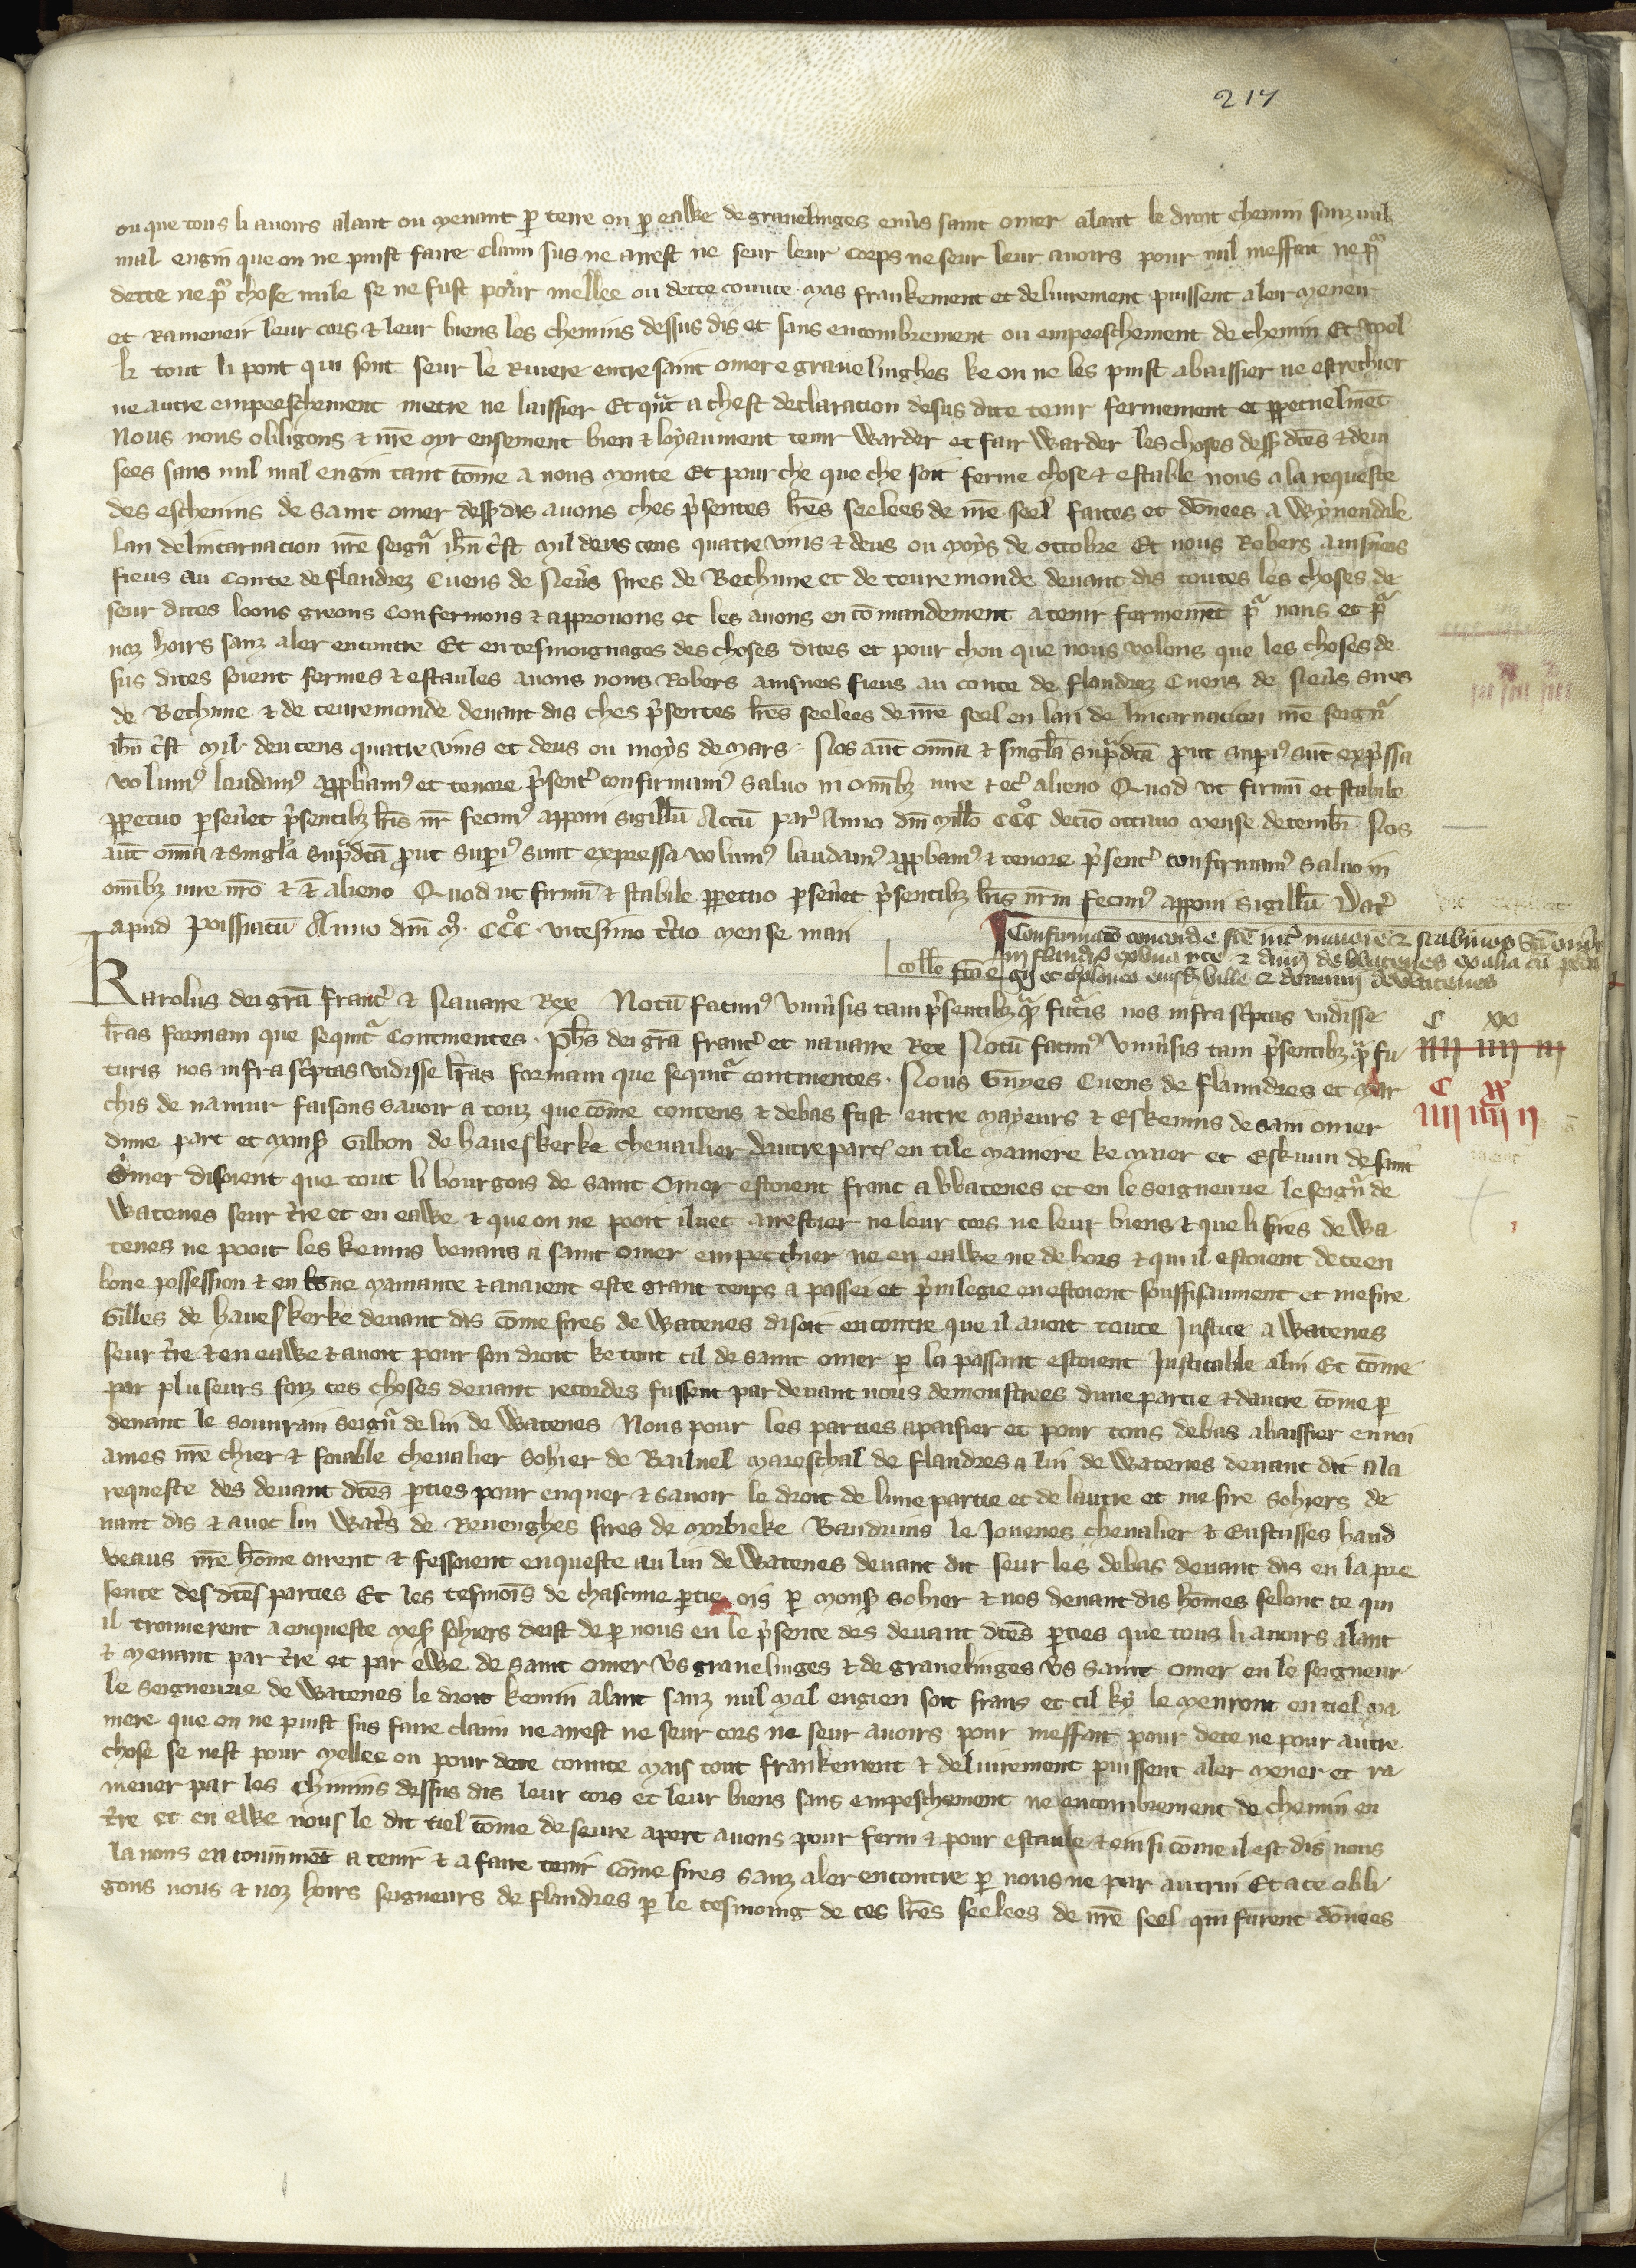 217
ou que tous li auoirs alant ou menant p terre ou p eawe de grauelinges enuers saint omer alant le droit chemin sanz nul
mal engin que on ne puist faire claim sus ne arrest ne seur leur corps ne seur leur auoirs pour nul meffait ne pr
dette ne pr chose nule se ne fust pour mellee ou dette conute mas frankement et deliurement puissent aler mener
et Ramener leur cors & leur biens les chemins dessus dis et sans encombrement ou empeeschement de chemin Et
li tout li pont qui sont seur le Riuiere entre saint omer e grauelinghes ke on ne les puist abaissier ne estrechier
ne autre empeeschement metre ne laissier Et qnt a chest declaracion desus dite tenir fermement et ppetuelmet
Nous nous obligons & nre oyr ensement bien & loyaument tenir warder et fair warder les choses dess dtes & deui
sees sans nul mal engin tant come a nous monte Et pour che que che soit ferme chose & estable nous a la requeste
des escheuins de saint omer dess dis auons ches psentes lres seelees de nre seel faites et donees a Wynendale
lan delincarnacion nre seignr ihu crist mil deus cens quatre vins & deus ou moys de ottobre Et nous Robers ainsnes
fieus au Conte de flandrez Cuens de Neuers sires de Bethune et de teuremonde deuant dis toutes les choses de
seur dites loons greons confermons & approuons et les auons en comandement a tenir fermemet pr nous et pr
noz hoirs sanz aler encontre Et en tesmoignages des choses dites et pour chou que nous volons que les choses de
sus dites soient fermes & estaules auons nous Robers ainsnes fieus au conte de flandrez Cuens de Neuers sires
de Bethune & de teuremonde deuant dis ches psentes lres seelees de nre seel en lan de lincarnacion nre seignr
ihu crist mil deu cens quatre vins et deus ou moys de mars. Nos aut omia & singla supdca put supius sut expssa
volumus laudamus appbamus et tenore psent confirmamus saluo in omibz iure & etc alieno Quod ut firmu et stabile
ppetuo perseueret psentibz lris nr fecimus apponi sigillu Actu par Anno dni millo CCCo decio octauo mense decembr Nos
aut omia & singla supdca put superius sunt expressa volumus laudamus appbamus & tenore psent confirmamus saluo in
omibz iure nro & & alieno Quod ut firmu & stabile ppetuo perseueret psentibz lris nrm fecimus apponi sigillu Dat
apud Poissiacu Anno dni Mo CCCo vicesimo tcio mense maii
Confirmatio concordie fce int maiore & scabinos Sci omer
in flandr ex una pte & dnm de Watenes ex alia cu
coll fca e
Karolus dei gra franc & Nauarre Rex Notu facimus vniuersis tam psentibz qm futris nos infrascptas vidisse
lras formam que sequitr continentes. Phs dei gra franc et nauarre Rex Notu facimus vniuersis tam psentibz qm fu
turis nos infrascptas vidisse lras formam que sequitr continentes. Nous Guyes Cuens de flanndres et mar
chis de namur faisons sauoir a touz que come contens & debas fust entre mayeurs & Eskeuins de sain omer
dune part et mons Gilbon de haueskerke cheuailier dautre part en tile maniere ke maier et Eskiuin de saint
Omer disoient que tout li bourgois de saint Omer estoient franc a Watenes et en le seignerie le seignr de
Watenes seur tre et en eawe & que on ne pooit iluec arrestier ne leur cors ne leur biens & que li sires de Wa
tenes ne pooit les kemins venans a saint omer empecchier ne en eawe ne de hors & qui il estoient de ce en
bone possession & en bone mainance & auoient este grant temps a passei et priuilegie en estoient souffisanment et mesire
Gilles de haueskerke deuant dis come sires de Watenes disoit encontre que il auoit toute Justice a Watenes
seur tre & en eawe & auoit pour son droit ke tout cil de saint omer p la passant estoient Justicable a lui Et come
par pluseurs foiz ces choses deuant recordes fussent par deuant nous demoustrees dune partie & dautre come p
deuant le souurain seignr de lui de Watenes Nous pour les parties apaisier et pour tous debas abaissier enuoi
ames nre chier & foiable cheualier Sohier de Bailuel mareschal de flandres a lui de Watenes deuant dit a la
requeste des deuant dtes pties pour enquer & sauoir le droit de lune partie et de lautre et mesire Sohiers de
uant dis & auec lui Wats de Reuenghes sires de morbieke Bauduins le Jouenes cheualier & Eustasses haud
veaus nre home oirent & fessoient enqueste au lui de Watenes deuant dit seur les debas deuant dis en la pre
sence des dtes parties Et les tesmois de chascune ptie ois p mons Sohier & nos deuant dis homes selonc ce qui
il trouuerent a enqueste mess sohiers deist de p nous en le psence des deuant dtes pties que tous li auoirs alant
& menant par tre et par ewe de saint omer vers grauelinges & de grauelinges vers saint omer en le seigneur
le seigneurie de Watenes le droit kemin alant sanz nul mal engien soit frans et cil ky le menront en tiel ma
niere que on ne puist sus faire claim ne arrest ne seur cors ne seur auoirs pour meffait pour dete ne pour autre
chose se nest pour mellee ou pour dete conute mais tout frankement & deliurement puissent aler mener et ra
mener par les chimins dessus dis leur cors et leur biens sans empeschement ne encombrement de chemin en
tre et en ewe nous le dit tiel come deseure apert auons pour ferm & pour estaule & ensi come il est dis nous
la uons en conuinmet a tenir & a faire tenir come sires sanz aler encontre p nous ne par autrui Et a ce obli
gons nous & noz hoirs seigneurs de flandres p le tesmoing de ces lres seelees de nre seel qui furent donees
C XX
IIII IIII III
C XX
IIII IIII II